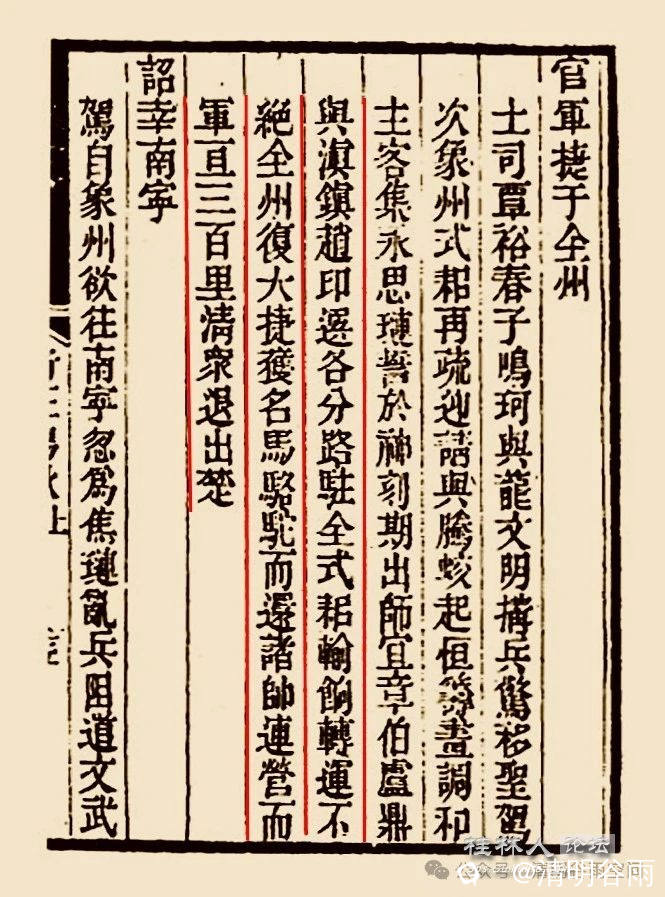 官軍捷于全州
土司覃裕春子鳴珂與龍文明搆兵驚移聖駕
次象州式耜再疏迎請與騰蛟起恒籌畫調和
主客集永思璉誓於神刻期出師宜章伯盧鼎
與滇鎮趙印選各分路駐全式耜輸餉轉運不
絕全州復大捷獲名馬駱駝而還諸帥連營而
軍亘三百里清衆退出楚
詔幸南寧
駕自象州欲往南寧忽爲焦璉亂兵阻道文武
桂林人论坛
公众号
@清明谷雨